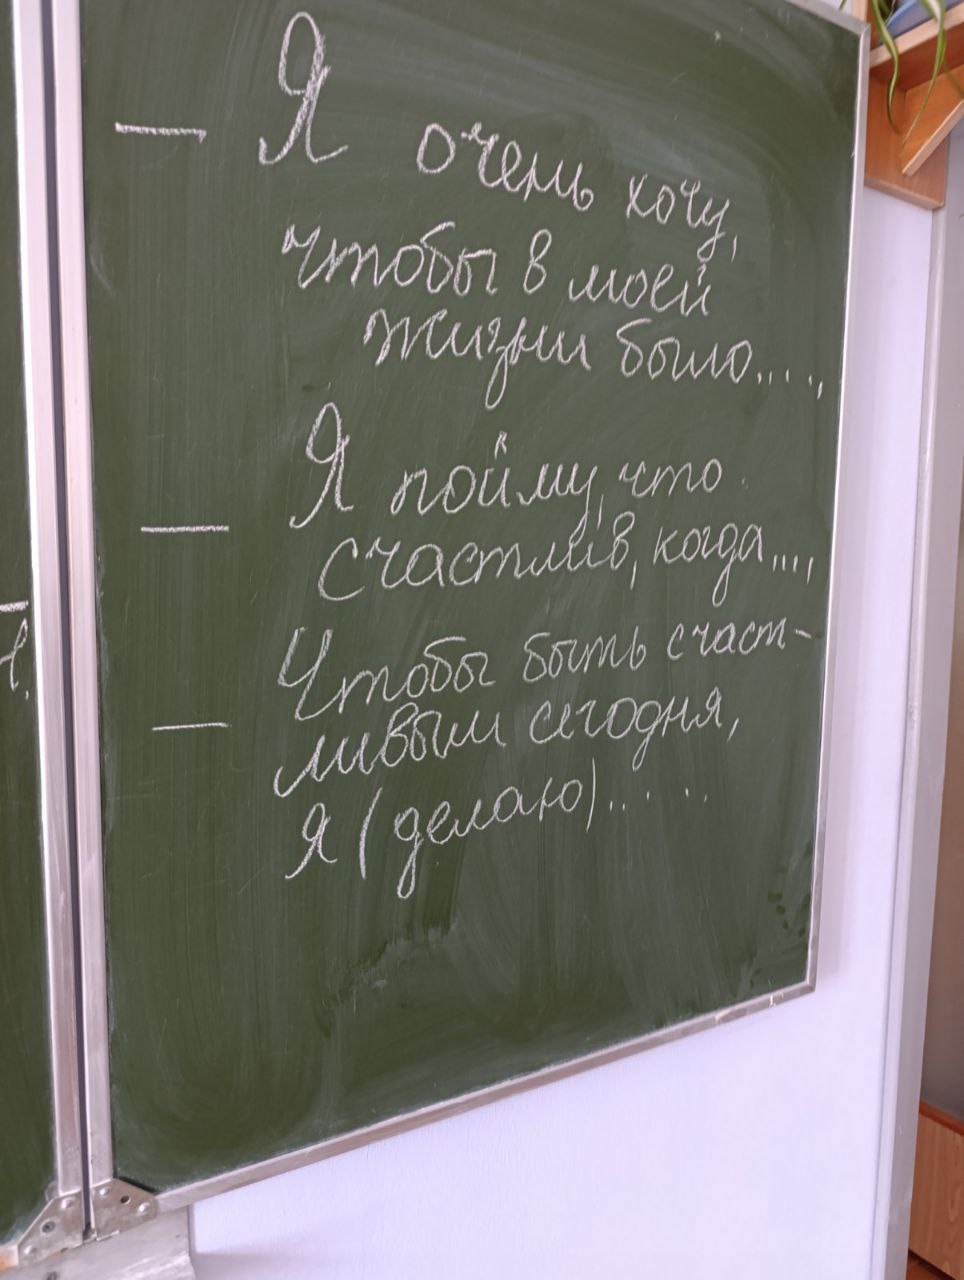 — Я очень хочу,
чтобы в моей
жизни было....,
— Я пойму, что
счастлив, когда...,
— Чтобы быть счаст-
ливым сегодня,
я (делаю)......